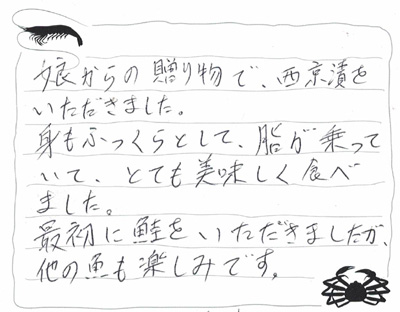 娘からの贈り物で、西京漬を
いただきました。
身もふっくらとして、脂が乗って
いて、とても美味しく食べ
ました。
最初に鮭をいただきましたが、
他の魚も楽しみです。